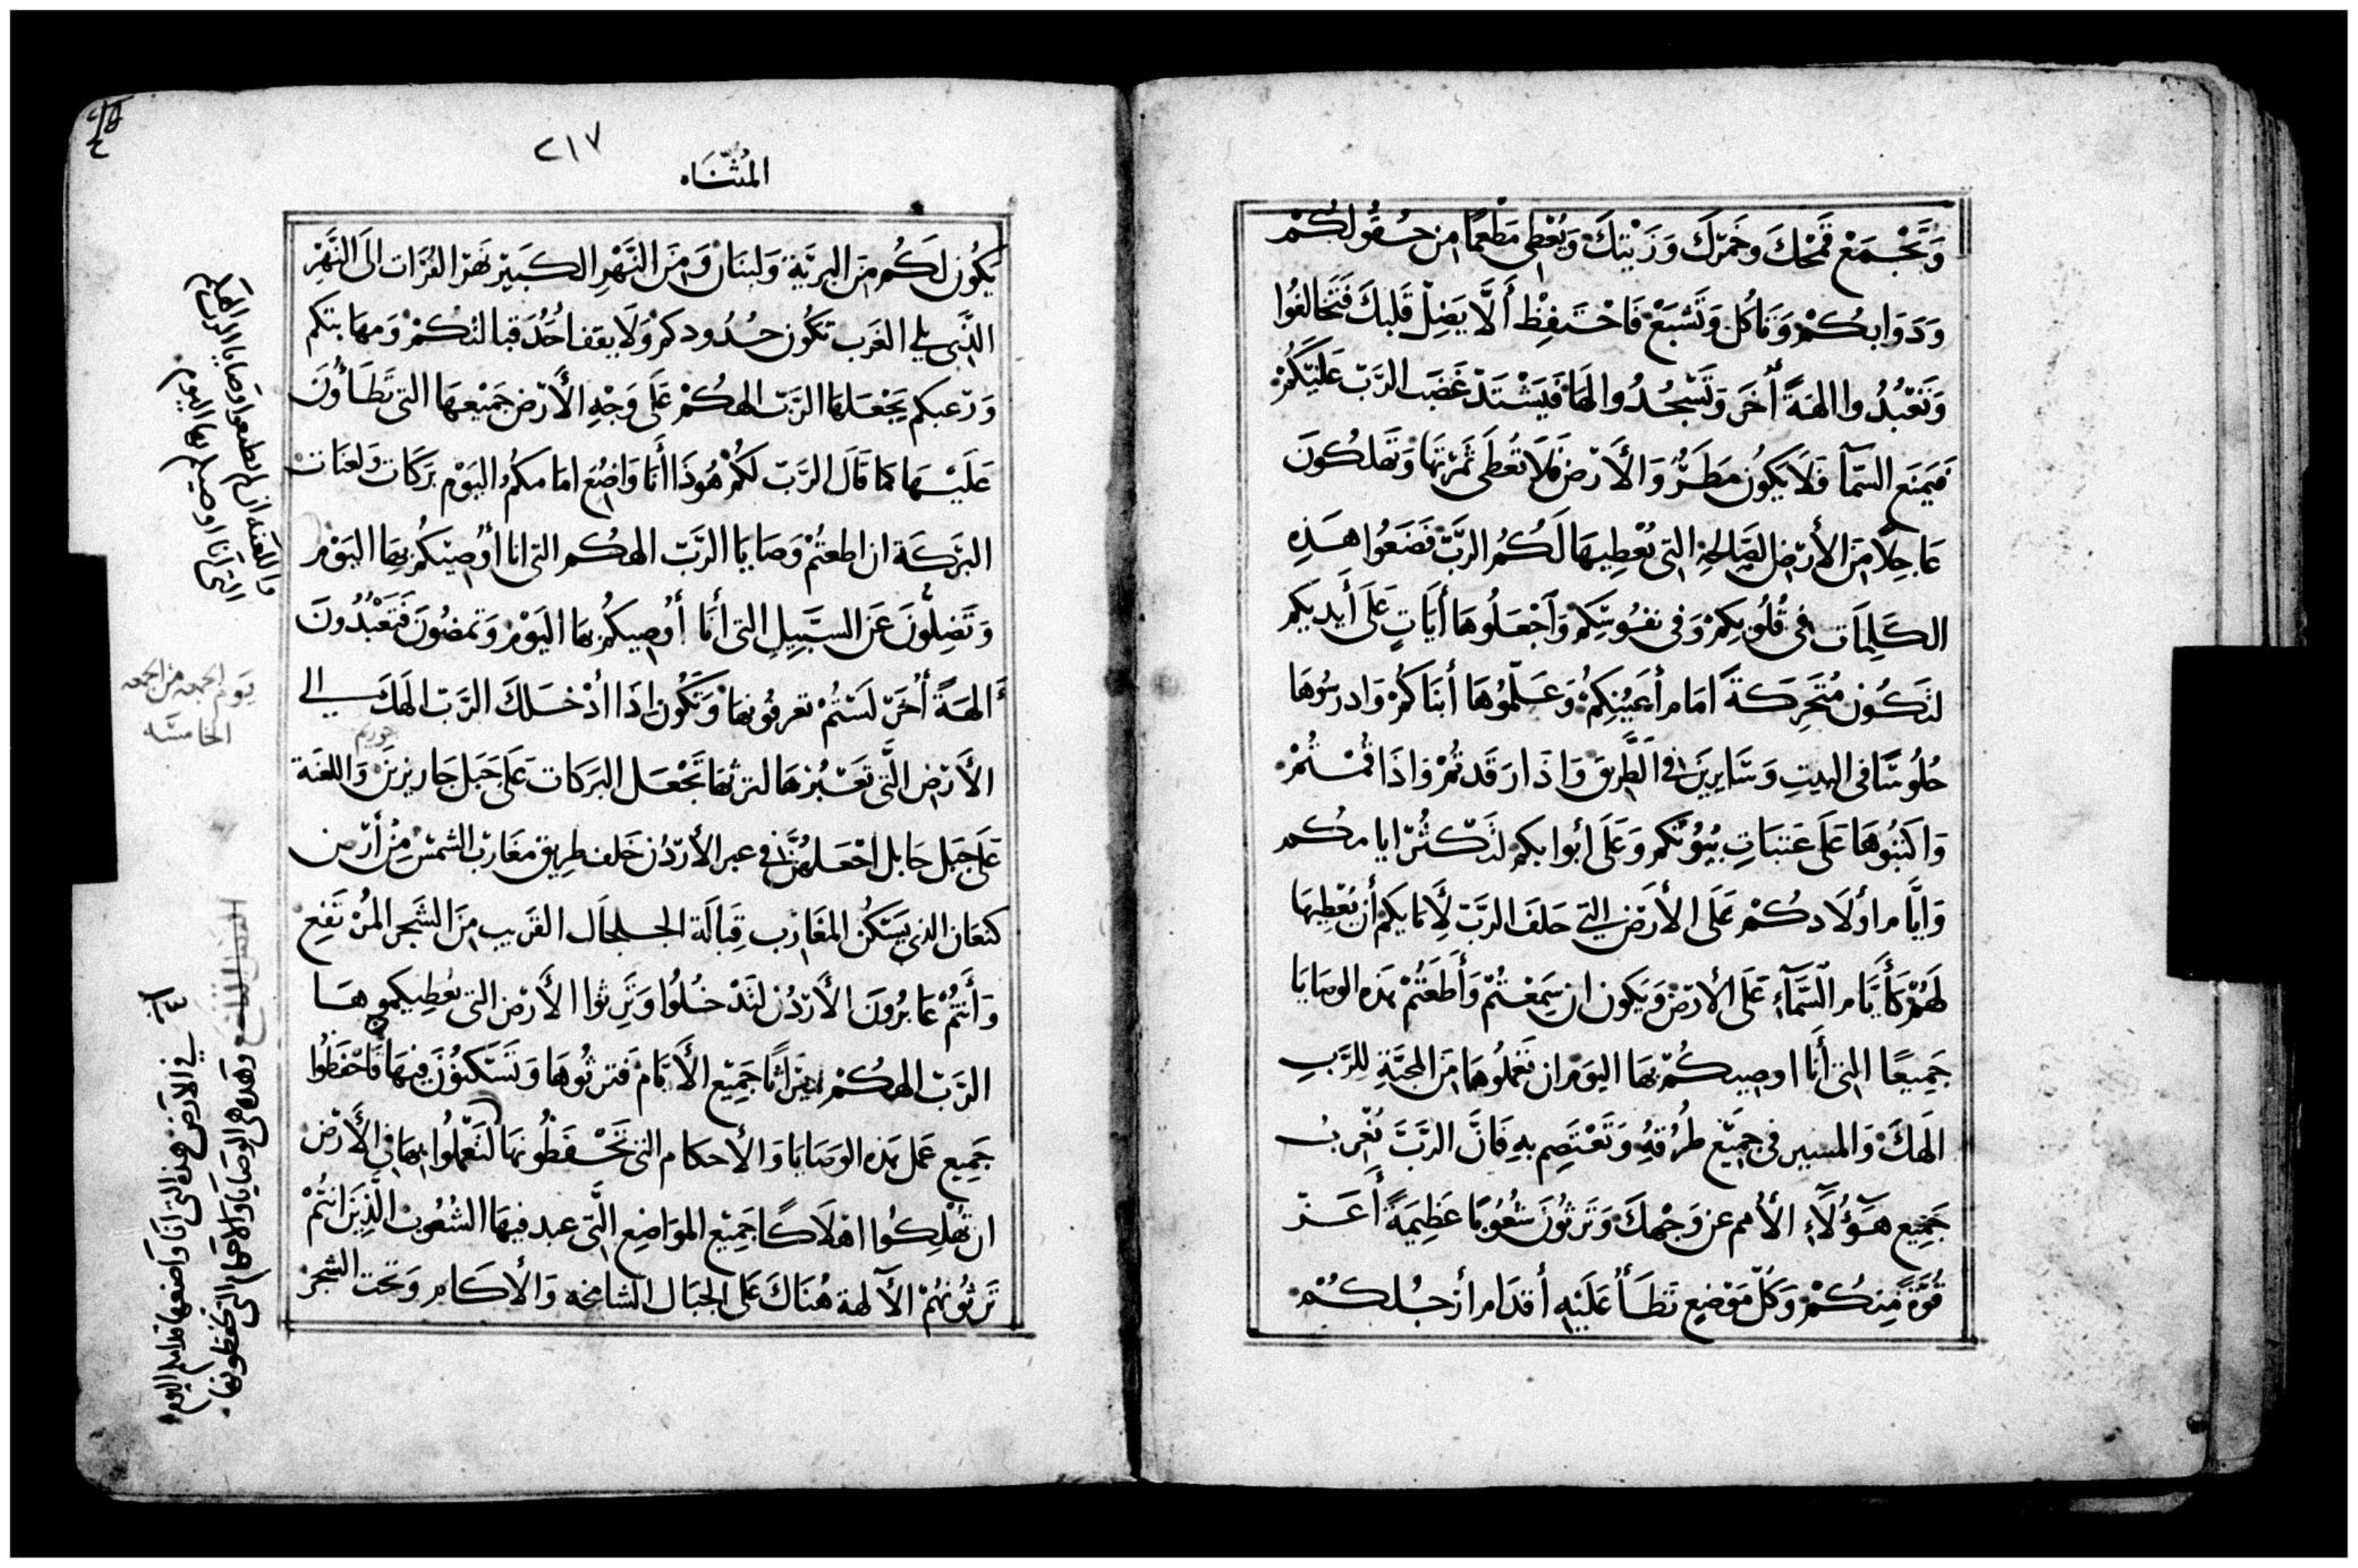 وَتَجْمَعْ قَمْحَكَ وخَمرَكَ وَزَيْتَكَ وَيُعْطِي مَطْعمًا مِن حُقُولكُمْ
وَدَوَابكُمْ وَتَأكُل وَتَشبَعْ فَاحْتَفِظْ أَلَّا يَضِلّ قَلبكَ فَتَخالفُوا
وَتَعْبُدُوا الهَةً أُخَرَ وَتَسْجُدُوا لهَا فَيَشْتَدّ غَضَب الرَّبّ عَلَيْكُمْ
فَيَمنَع السّمَآ فَلَا يَكُون مَطَرٌ وَالأَرْض فَلَا تُعْطَى ثَمْرتهَا وَتَهلكُونَ
عَاجِلًا مِنَ الأَرْضِ الصَّالِحَةِ التِي يُعْطِيهَا لَكُمُ الرَّبّ فَضَعُوا هَذِهِ
الكَلِمَات فِي قُلُوبِكُمْ وَفِي نفُوسِكُمْ وَآجْعَلُوهَا أَيَاتٍ عَلَى أَيديكم
لتَكُون مُتَحَرِكَةً امَام أَعيُنِكُمْ وَعَلّمُوهَا أبنَاكُمْ وَادرسُوهَا
جُلُوسًا فِى البيتِ وَسَايِرِينَ فِي الطَّرِيقَ وَاذَا رَقَدتُمْ وَاذَا قُمْتُمْ
وَاكتبُوهَا عَلَى عَتبَاتِ بيُوتكم وَعَلَى أبوابكم لتَكثُر ايامكم
وَايَّام أولَادكُمْ عَلَى الأَرْض التِي حَلفَ الربّ لِأَبايكم أن يُعْطِيهَا
لَهُمْ كَأَيَّام السَّمَآءِ عَلَى الأرْض وَيَكون ان سَمِعْتُمْ وَأَطَعْتُمْ هَذِه الوصَايَا
جَمِيعًا التِي أَنَا اوصِيكُمْ بهَا اليَوْم ان تَعْمَلُوهَا مِنَ المحَبَّةِ لِلرَّبِ
الهَكَ وَالمسير فِي جَمِيْع طُرُقِهِ وَتَعْتَصِم بِهِ فَانَّ الربَّ يُغْرِبُ
جَمِيع هَؤُلَآءِ الأُمم عن وَجْهكَ وَتَرثُونَ شُعُوبًا عَظِيمَةً أَعَزّ
قُوَّةً مِنكُمْ وَكُلّ مَوْضِعٍ تَطَأ عَلَيْهِ أقدَام أرجُلكُمْ
٢١٧
المُثَنَاه
يَكُون لَكُم مِنَ البريّة وَلبنَان وَمِنَ النَّهْرِ الكَبيْر نَهر الفُرَات الَى النَّهْر
الذِّي يلي الغَرب تكُون حُدُودكم وَلَا يقف احُدٌ قبالتكُمْ وَمهابتكم
وَرعبكم يَجْعَلهَا الرَّبّ الهكُمْ عَلَى وَجْهِ الأَرْض جَمِيْعهَا التي تَطَأوُنَ
عَلَيْهَا كمَا قَالَ الرَّبّ لكُمْ هُوذَا أنَا وَاضِع امَامكُم اليَوْم بَرَكَات وَلعنَات
البَرَكَة ان اطعتُمْ وَصَايَا الرَّبّ الهكُم التى انا أُوصيكُم بهَا اليَوْم
وَتَضِلُّونَ عَن السَّبِيلِ التى أَنَا أُوصِيكُم بهَا اليَوْم وَتمضُونَ فَتَعْبُدُونَ
الهَةً أُخَرَ لَسْتُمْ تعرفُونهَا وَتَكُون اذَا أدْخلَكَ الرَّبّ الهَكَ الي
الأَرْضِ الَّتى تَعْبُرهَا لترثهَا تَجْعَل البَرَكَات عَلَى جَبَل جَاريزيْن وَاللعْنَة
عَلَى جَبل جَابل اجْعَلهُنَّ فِي عبر الأرْدُن خَلف طِريق مغَارب الشمْس مِنْ أَرْض
كنعَان الذِي يَسْكن المغَارِب قِبَالَة الجلجَال القَرِيب مِنَ الشَجر المُرْتَفِع
وَأَنتُمْ عَابرُونَ الأَرْدُن لتَدْخُلُوا وَتَرِثوا الأَرْض التى يُعْطِيكموهَا
الرَّبّ الهكُمْ مِيْرَاثًا جَمِيْع الأَيَّام فَترثُوهَا وَتَسْكنُوْنَ فِيهَا فَاحْفَظُوا
جَمِيع عَمل هَذِه الوَصَايَا وَالأحكَام التى تَحْفَظُونهَا لتَعْمَلُوا بهَا فِي الأَرْض
ان تُهْلِكُوا اهْلَاكًا جَمِيْع المَوَاضِعِ الَّتى عبد فيهَا الشعُوب الَّذِيْنَ انْتُمْ
تَرثُونهُمْ الآلهة هُنَاكَ عَلَى الجبَال الشامخه وَالأكَام وَتحت الشجر
وَاللعْنَة ان لم تطيعوا وصَايا الرَّب الهكم
التى أنا اوصيكم بها اليوم
يَوم الجمعه من الجمعه
الخامسَه
حوريم
وَهَذه هى الوصَايَا وَالاحكام التى تحفظونها
في الأرض هذه التى أنَا واضعهَا قدامكم اليوم